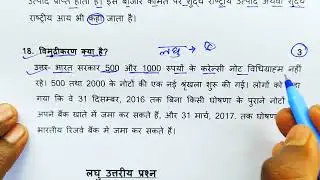 उत्पाद प्राप्त होता है। इसे बाजार कीमत पर शुद्ध राष्ट्रीय उत्पाद अथवा शुद्ध
राष्ट्रीय आय भी कहा जाता है।
लघु →
18. विमुद्रीकरण क्या है?
3
उत्तर- भारत सरकार 500 और 1000 रुपयों के करेन्सी नोट विधिग्राह्य नहीं
रहे। 500 तथा 2000 के नोटों की एक नई श्रृंखला शुरू की गई। लोगों को
गया कि वे 31 दिसम्बर, 2016 तक बिना किसी घोषणा के पुराने नोटों
अपने बैंक खाते में जमा कर सकते हैं। और 31 मार्च, 2017. तक घोषणा
भारतीय रिजर्व बैंक में जमा कर सकते हैं।
लघु उत्तरीय प्रश्न